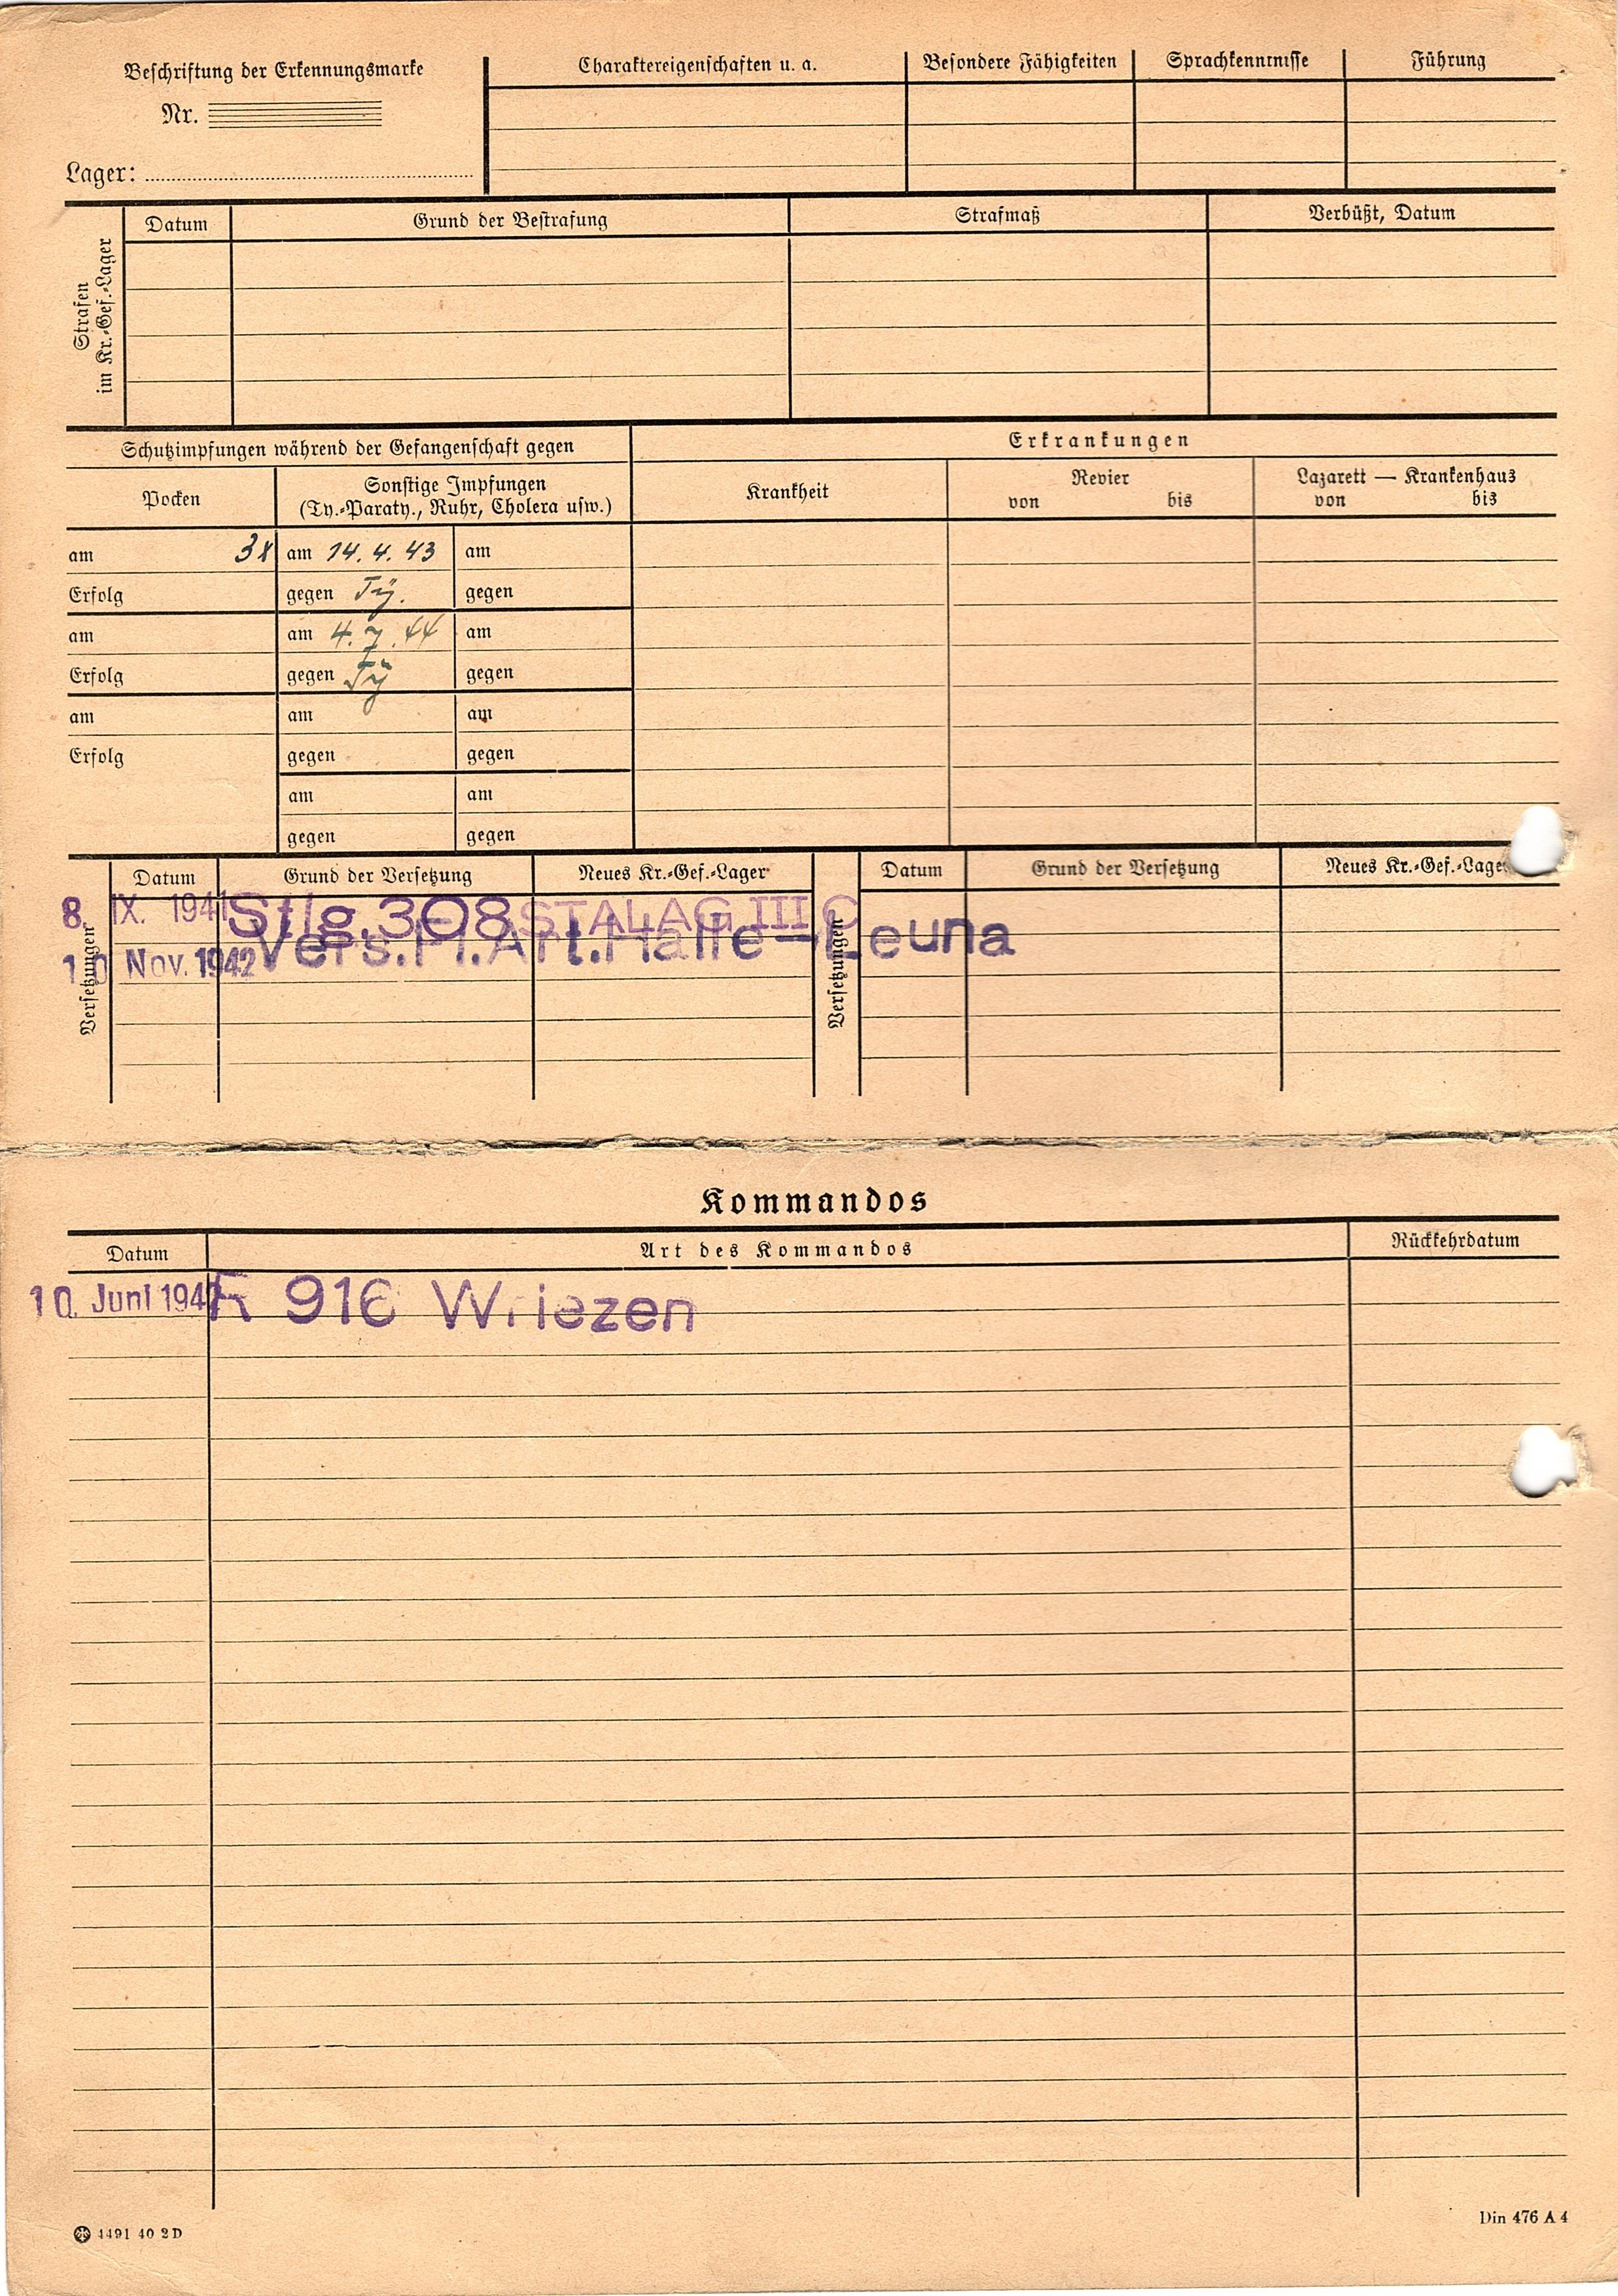 Beschriftung der Erkennungsmarke
Nr.
Lager:
Charaktereigenschaften u. a.
Besondere Fähigkeiten
Sprachkenntnisse
Führung
Strafen
im Kr.-Gef.-Lager
Datum
Grund der Bestrafung
Strafmaß
Verbüßt, Datum
Schutzimpfungen während der Gefangenschaft gegen
Erkrankungen
Pocken
Sonstige Impfungen
(Ty.-Paraty., Ruhr, Cholera usw.)
Krankheit
Revier
von bis
Lazarett — Krankenhaus
von bis
am am 14. 4. 43 am
Erfolg gegen Ty. gegen
am am 4. 7. 44 am
Erfolg gegen Ty gegen
am am am
Erfolg gegen gegen
am am
gegen gegen
Versetzungen
Datum Grund der Versetzung Neues Kr.-Gef.-Lager
8. IX. 1941 Stlg. 308 STALAG III C
10 Nov. 1942 Vers. Halle-Leuna
Versetzungen
Datum Grund der Versetzung Neues Kr.-Gef.-Lager
Kommandos
Datum Art des Kommandos Rückkehrdatum
10. Juni 194 916 Wriezen
4491 40 2D
Din 476 A 4